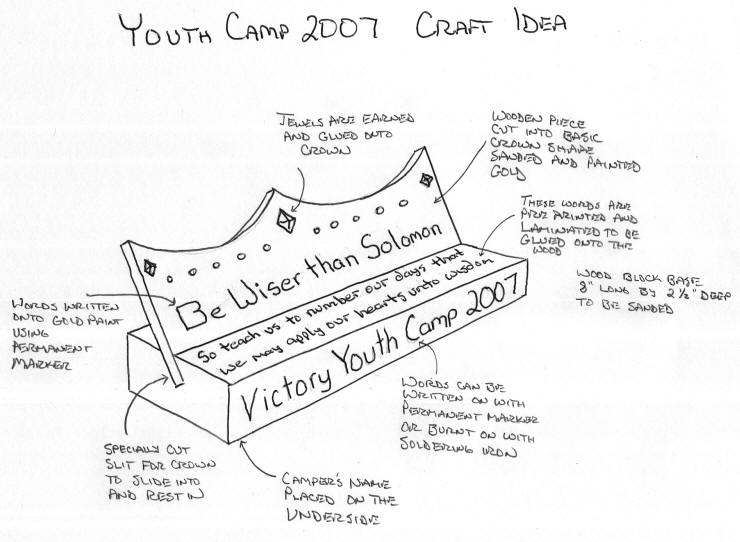 YOUTH CAMP 2007 CRAFT IDEA
JEWELS ARE EARNED
AND GLUED ONTO
CROWN
WOODEN PIECE
CUT INTO BASIC
CROWN SHAPE
SANDED AND PAINTED
GOLD
THESE WORDS ARE
PRE PRINTED AND
LAMINATED TO BE
GLUED ONTO THE
WOOD
WOOD BLOCK BASE
8" LONG BY 2 1/2" DEEP
TO BE SANDED
Be Wiser than Solomon
So teach us to number our days that
we may apply our hearts unto wisdom"
Victory Youth Camp 2007
WORDS WRITTEN
ONTO GOLD PAINT
USING
PERMANENT
MARKER
WORDS CAN BE
WRITTEN ON WITH
PERMANENT MARKER
OR BURNT ON WITH
SOLDERING IRON
SPECIALLY CUT
SLIT FOR CROWN
TO SLIDE INTO
AND REST IN
CAMPER'S NAME
PLACED ON THE
UNDERSIDE